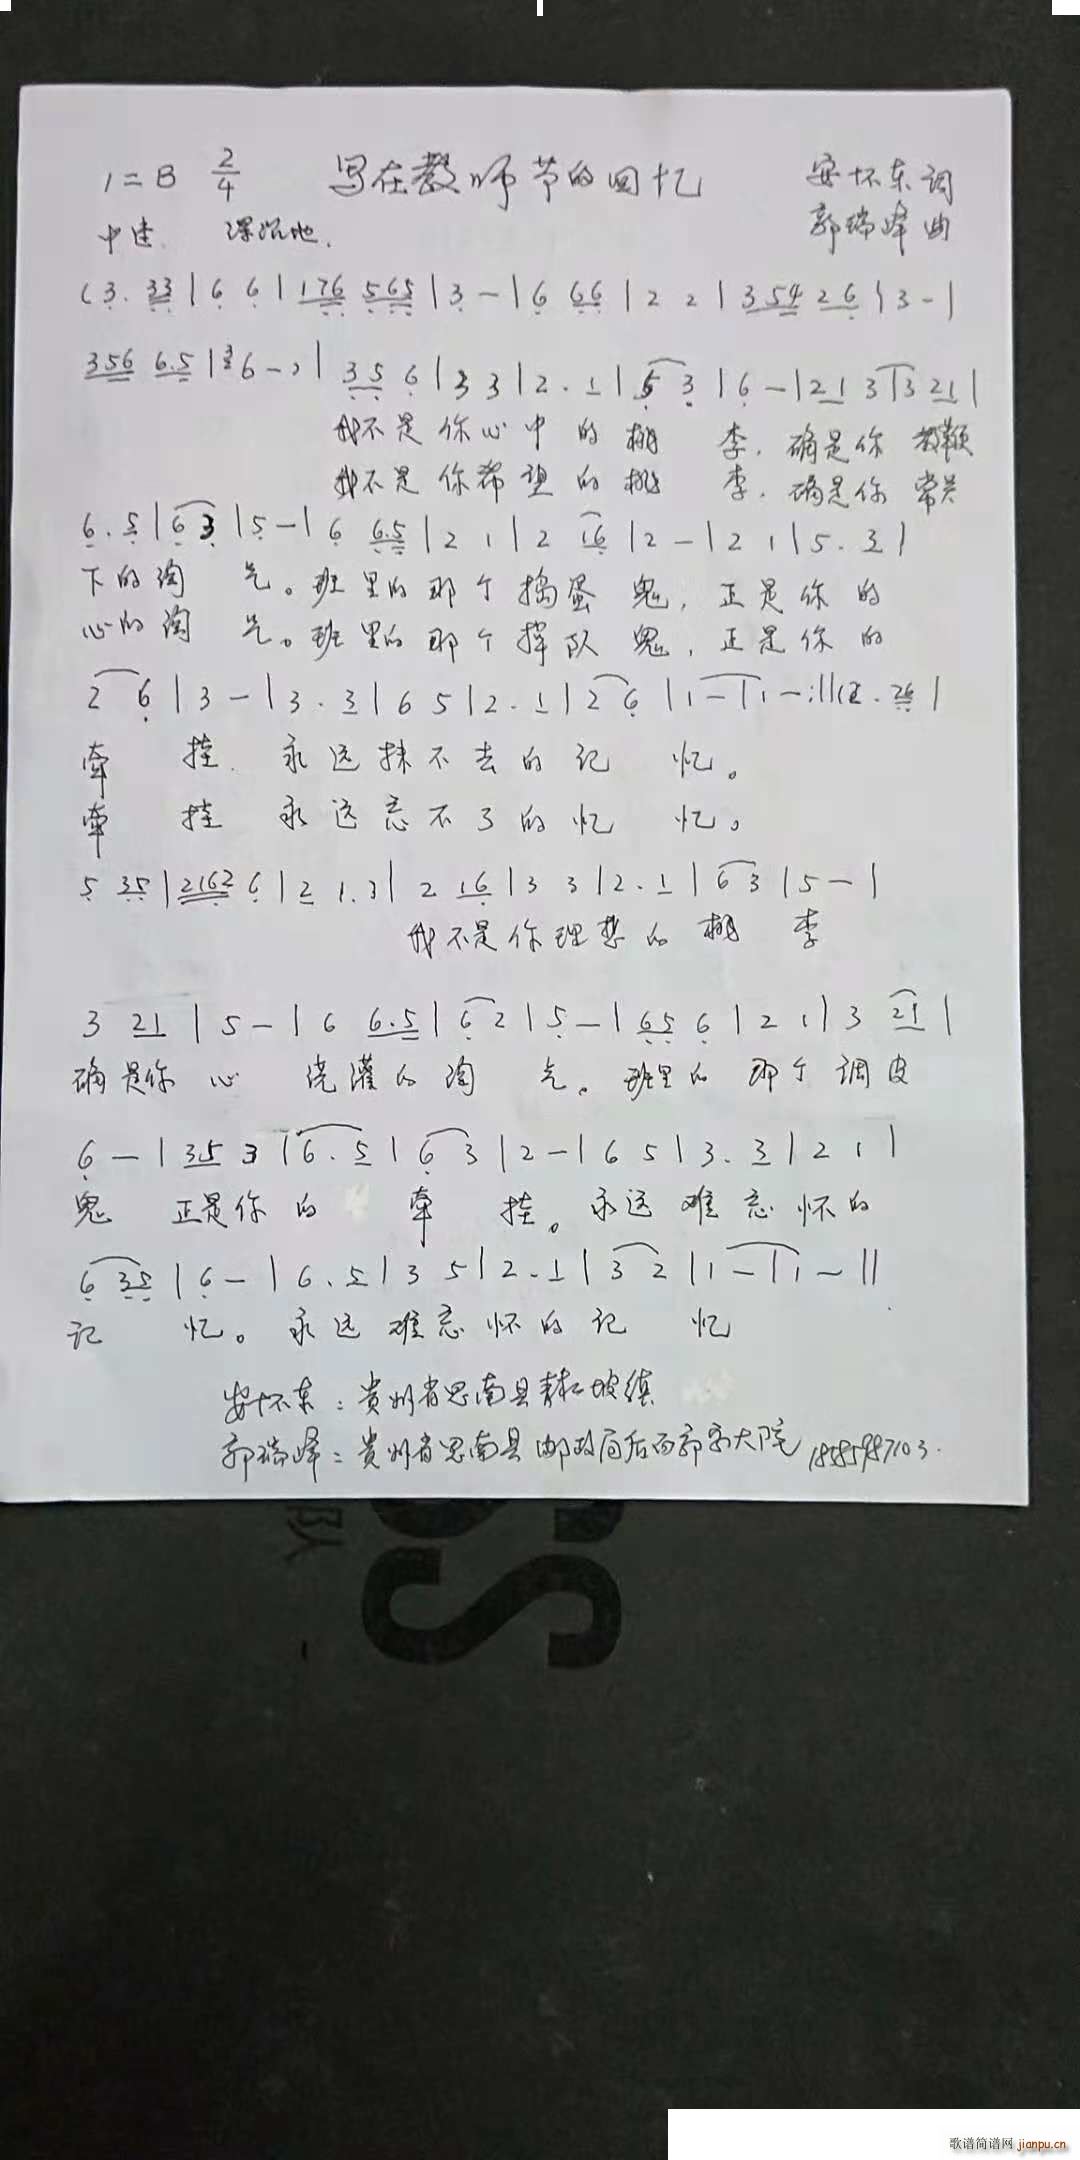 1=B 2/4 写在教师节的回忆 安怀东词
中速 深沉地. 郭瑞峰曲
(3. 33|6 6|176 565|3-|6 66|2 2|354 26|3-|
356 6.5|6-)|35 6|3 3|2.1|5 3|6-|21 3|3 21|
我不是你心中的桃 李.确是你教鞭
我不是你希望的桃 李.确是你常关
6.5|6 3|5-|6 6.5|2 1|2 16|2-|2 1|5.3|
下的淘 气。班里的那个捣蛋鬼,正是你的
心的淘 气。班里的那个掉队鬼,正是你的
2 6|3-|3.3|6 5|2.1|2 6|1-|1-:||(2.26|
牵 挂.永远抹不去的记 忆。
牵 挂 永远忘不了的忆 忆。
5 35|2162 6|2 1.3|2 16|3 3|2.1|6 3|5-|
我不是你理想的桃 李
3 21|5-|6 6.5|6 2|5-|65 6|2 1|3 21|
确是你 心 浇灌的淘 气。班里的那个调皮
6-|35 3|6.5|6 3|2-|6 5|3.3|2 1|
鬼 正是你的 牵 挂。永远难忘怀的
6 35|6-|6.5|3 5|2.1|3 2|1-|1-||
记 忆。永远难忘怀的记 忆
安怀东:贵州省思南县青杠坡镇
郭瑞峰:贵州省思南县邮政局后面郭家大院 18585987103.
队
歌谱简谱网 jianpu.cn